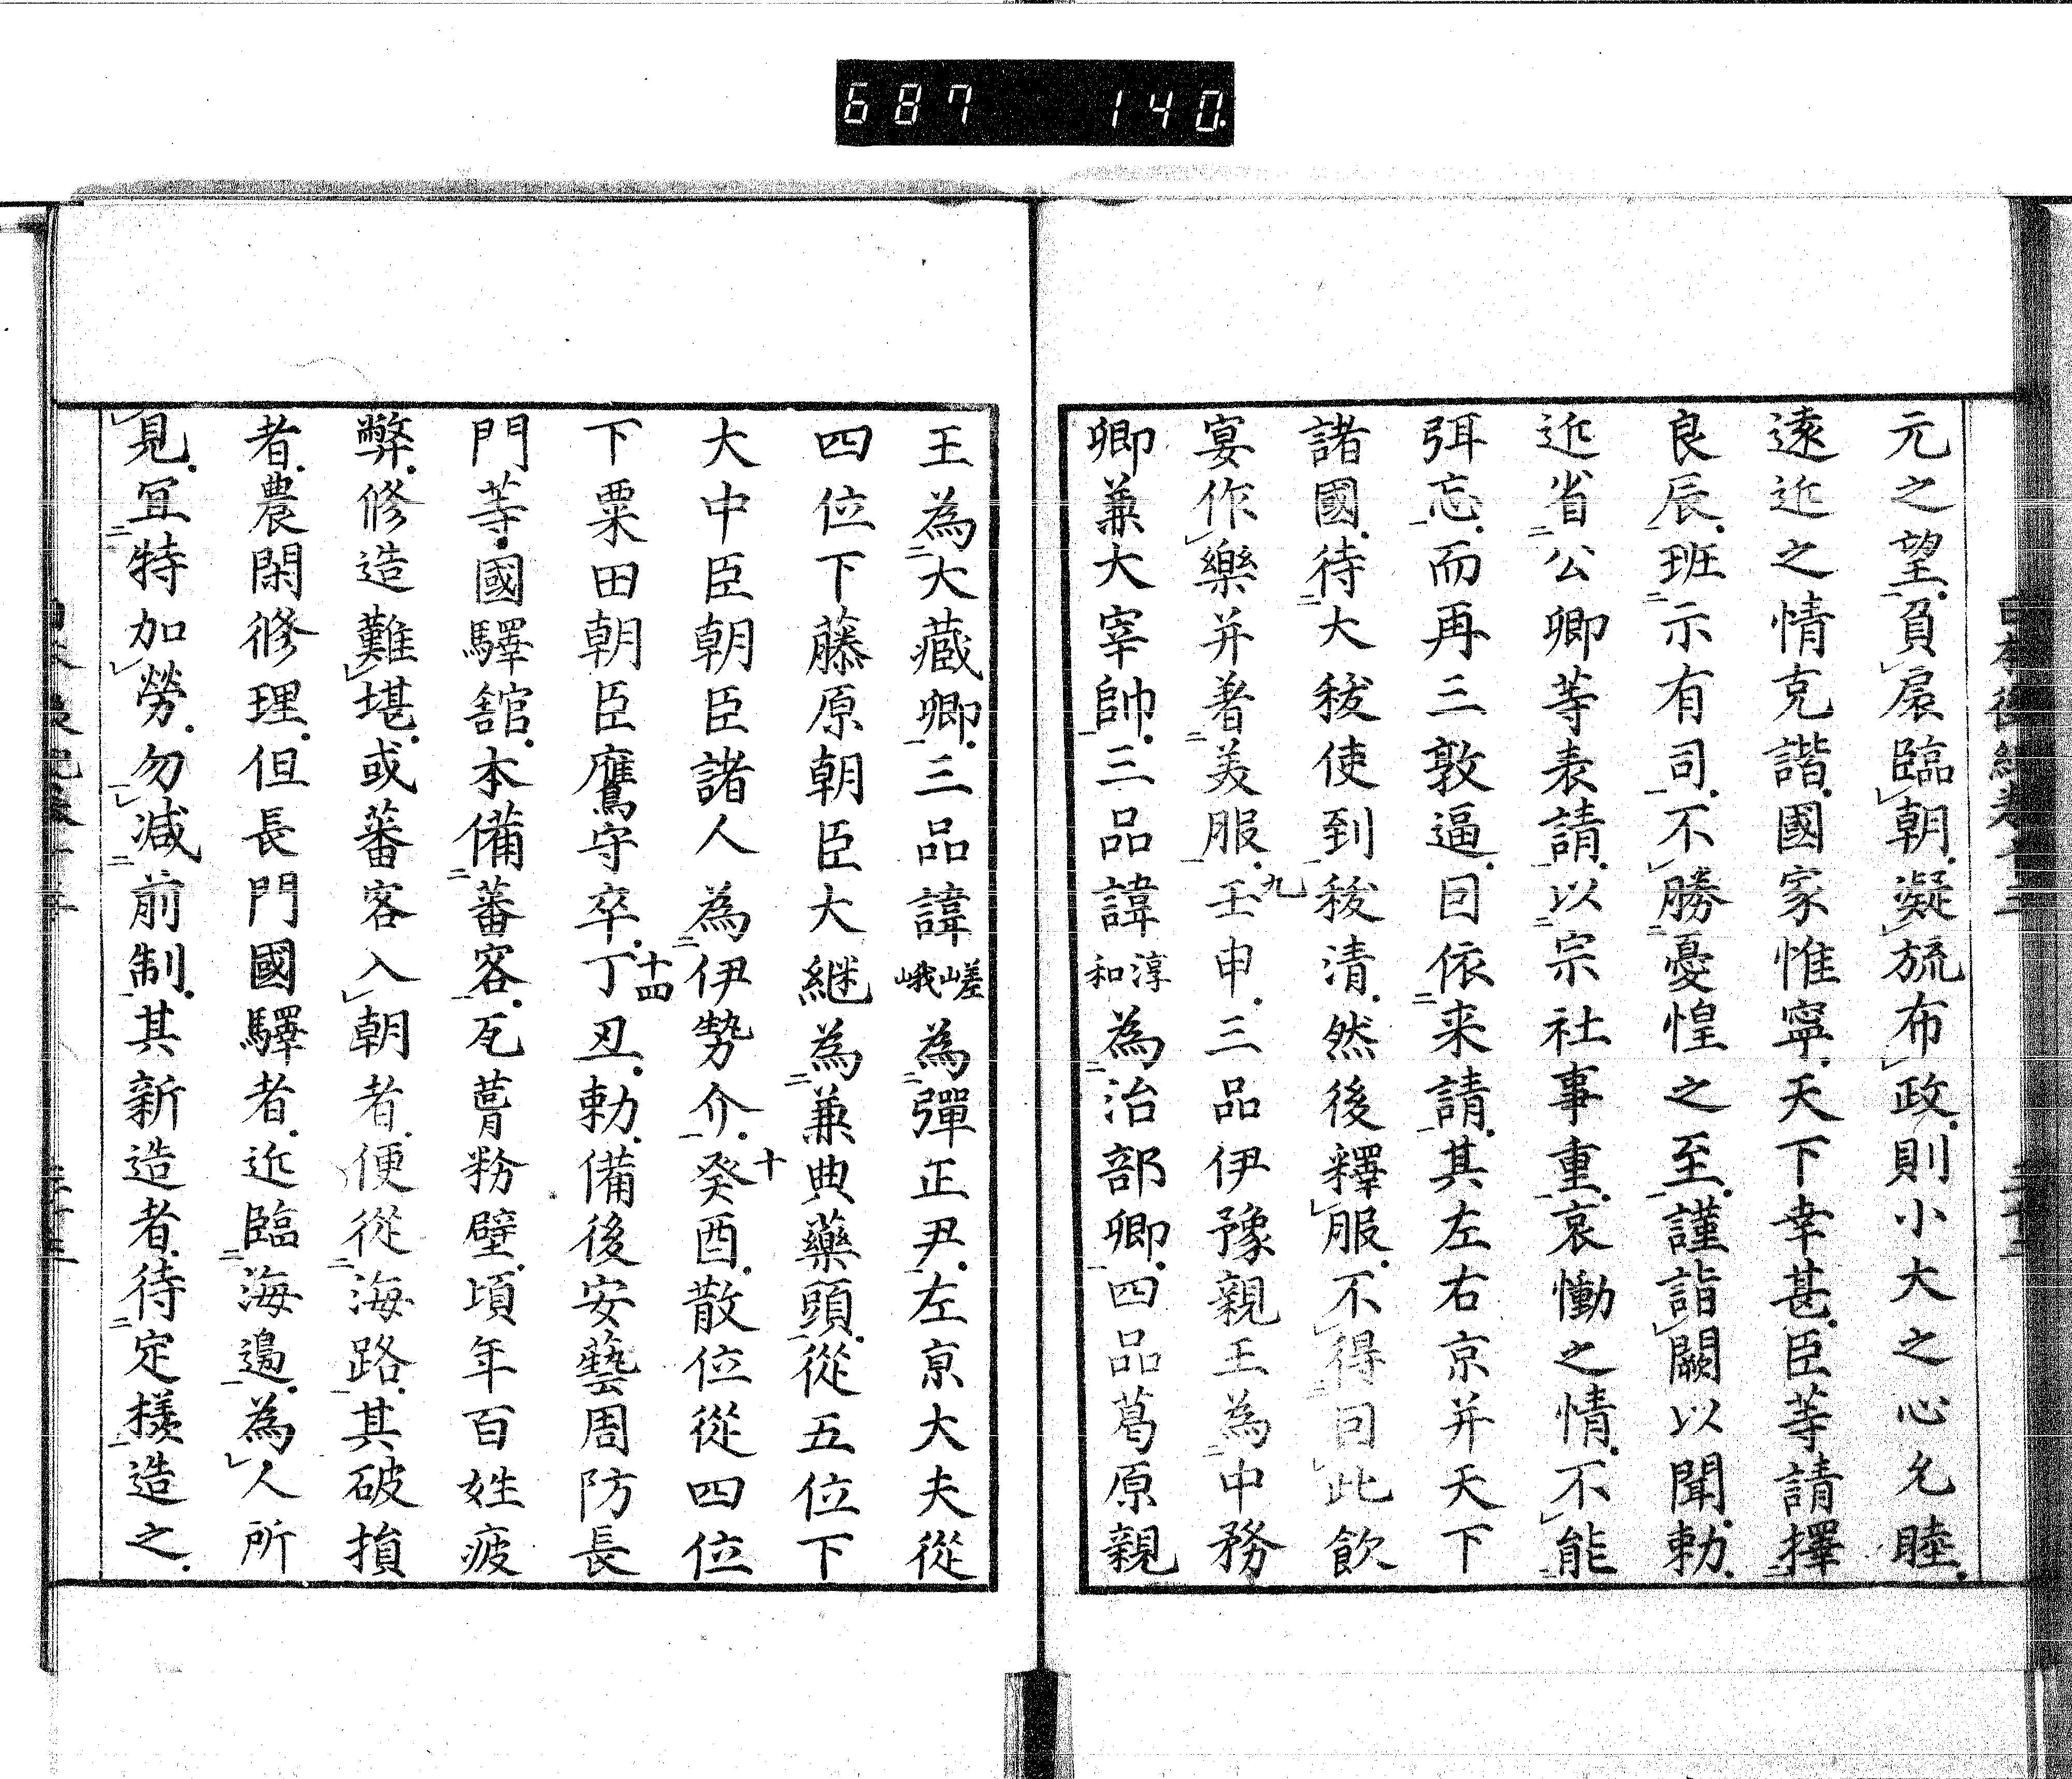 687 140.
元之望負扆臨朝凝旒布政則小大之心允睦
遠近之情克諧國家惟寧天下幸甚臣等請擇
良辰班示有司不勝憂惶之至謹詣闕以聞勅
近省公卿等表請以宗社事重哀慟之情不能
弭忘而再三敦逼曰依来請其左右京并天下
諸國待大秡使到秡清然後釋服不得曰此飲
宴作樂并著美服九壬申三品伊豫親王為中務
卿兼大宰帥三品諱淳和為治部卿四品葛原親
王為大藏卿三品諱嵯峨為彈正尹左京大夫從
四位下藤原朝臣大継為兼典藥頭從五位下
大中臣朝臣諸人為伊勢介十癸酉散位從四位
下粟田朝臣鷹守卒十四丁丑勅備後安藝周防長
門等國驛舘本備蕃客瓦葺粉壁頃年百姓疲
弊修造難堪或蕃客入朝者便從海路其破損
者農閑修理但長門國驛者近臨海邊為人所
見冝特加勞勿減前制其新造者待定様造之